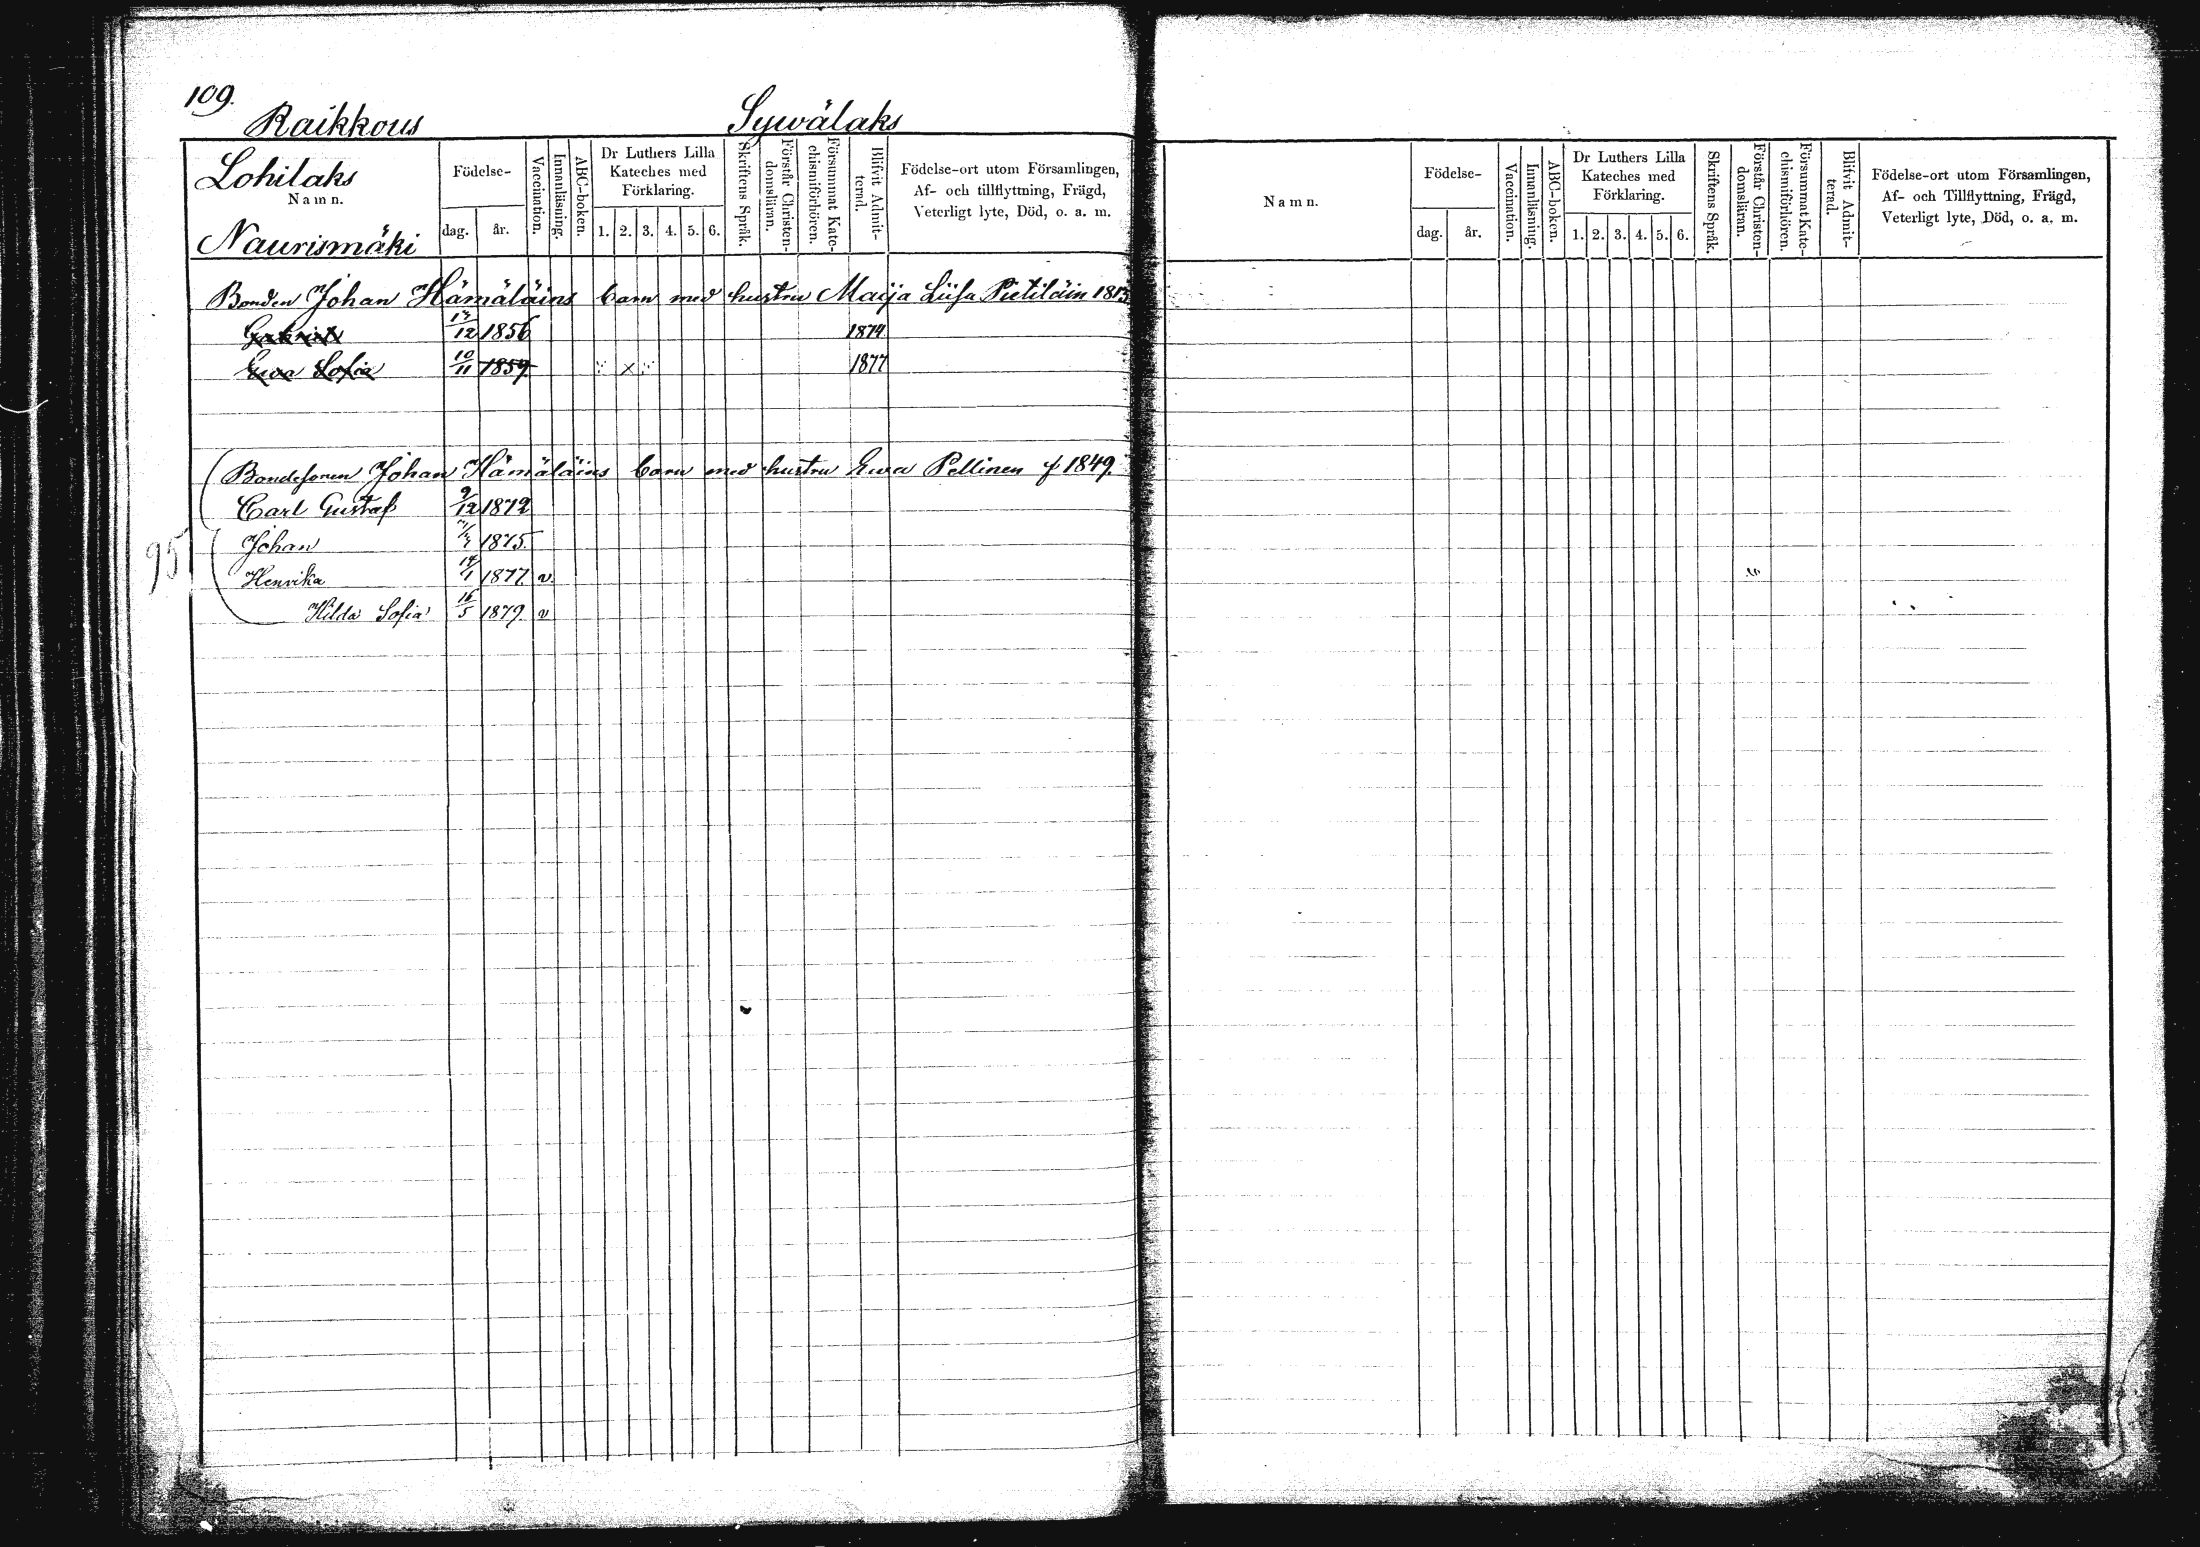 109.
Raikkous Sywälaks
Lohilaks
Namn.
Naurismäki
Födelse-
dag. år.
Vaccination.
Innanläsning.
ABC-boken.
Dr Luthers Lilla
Kateches med
Förklaring.
1. 2. 3. 4. 5. 6.
Skriftens Språk.
Förstår Christen-
domsläran.
Försummat Kate-
chismiförhören.
Blifvit Admit-
terad.
Födelse-ort utom Församlingen,
Af- och tillflyttning, Frägd,
Veterligt lyte, Död, o. a. m.
Bonden Johan Hämäläins barn med hustru Maija Liisa Pietiläin 1813
Gabriel 13/12 1856 1874
Ewa Sofia 10/11 1859 x 1877
Bondesonen Johan Hämäläins barn med hustru Ewa Pellinen f 1849.
Carl Gustaf 9/12 1872
Johan 1875.
95
Henrika 14/1 1877. v.
Hilda Sofia 16/5 1879. v
Namn.
Födelse-
dag. år.
Vaccination.
Innanläsning.
ABC-boken.
Dr Luthers Lilla
Kateches med
Förklaring.
1. 2. 3. 4. 5. 6.
Skriftens Språk.
Förstår Christen-
domsläran.
Försummat Kate-
chismiförhören.
Blifvit Admit-
terad.
Födelse-ort utom Församlingen,
Af- och Tillflyttning, Frägd,
Veterligt lyte, Död, o. a. m.